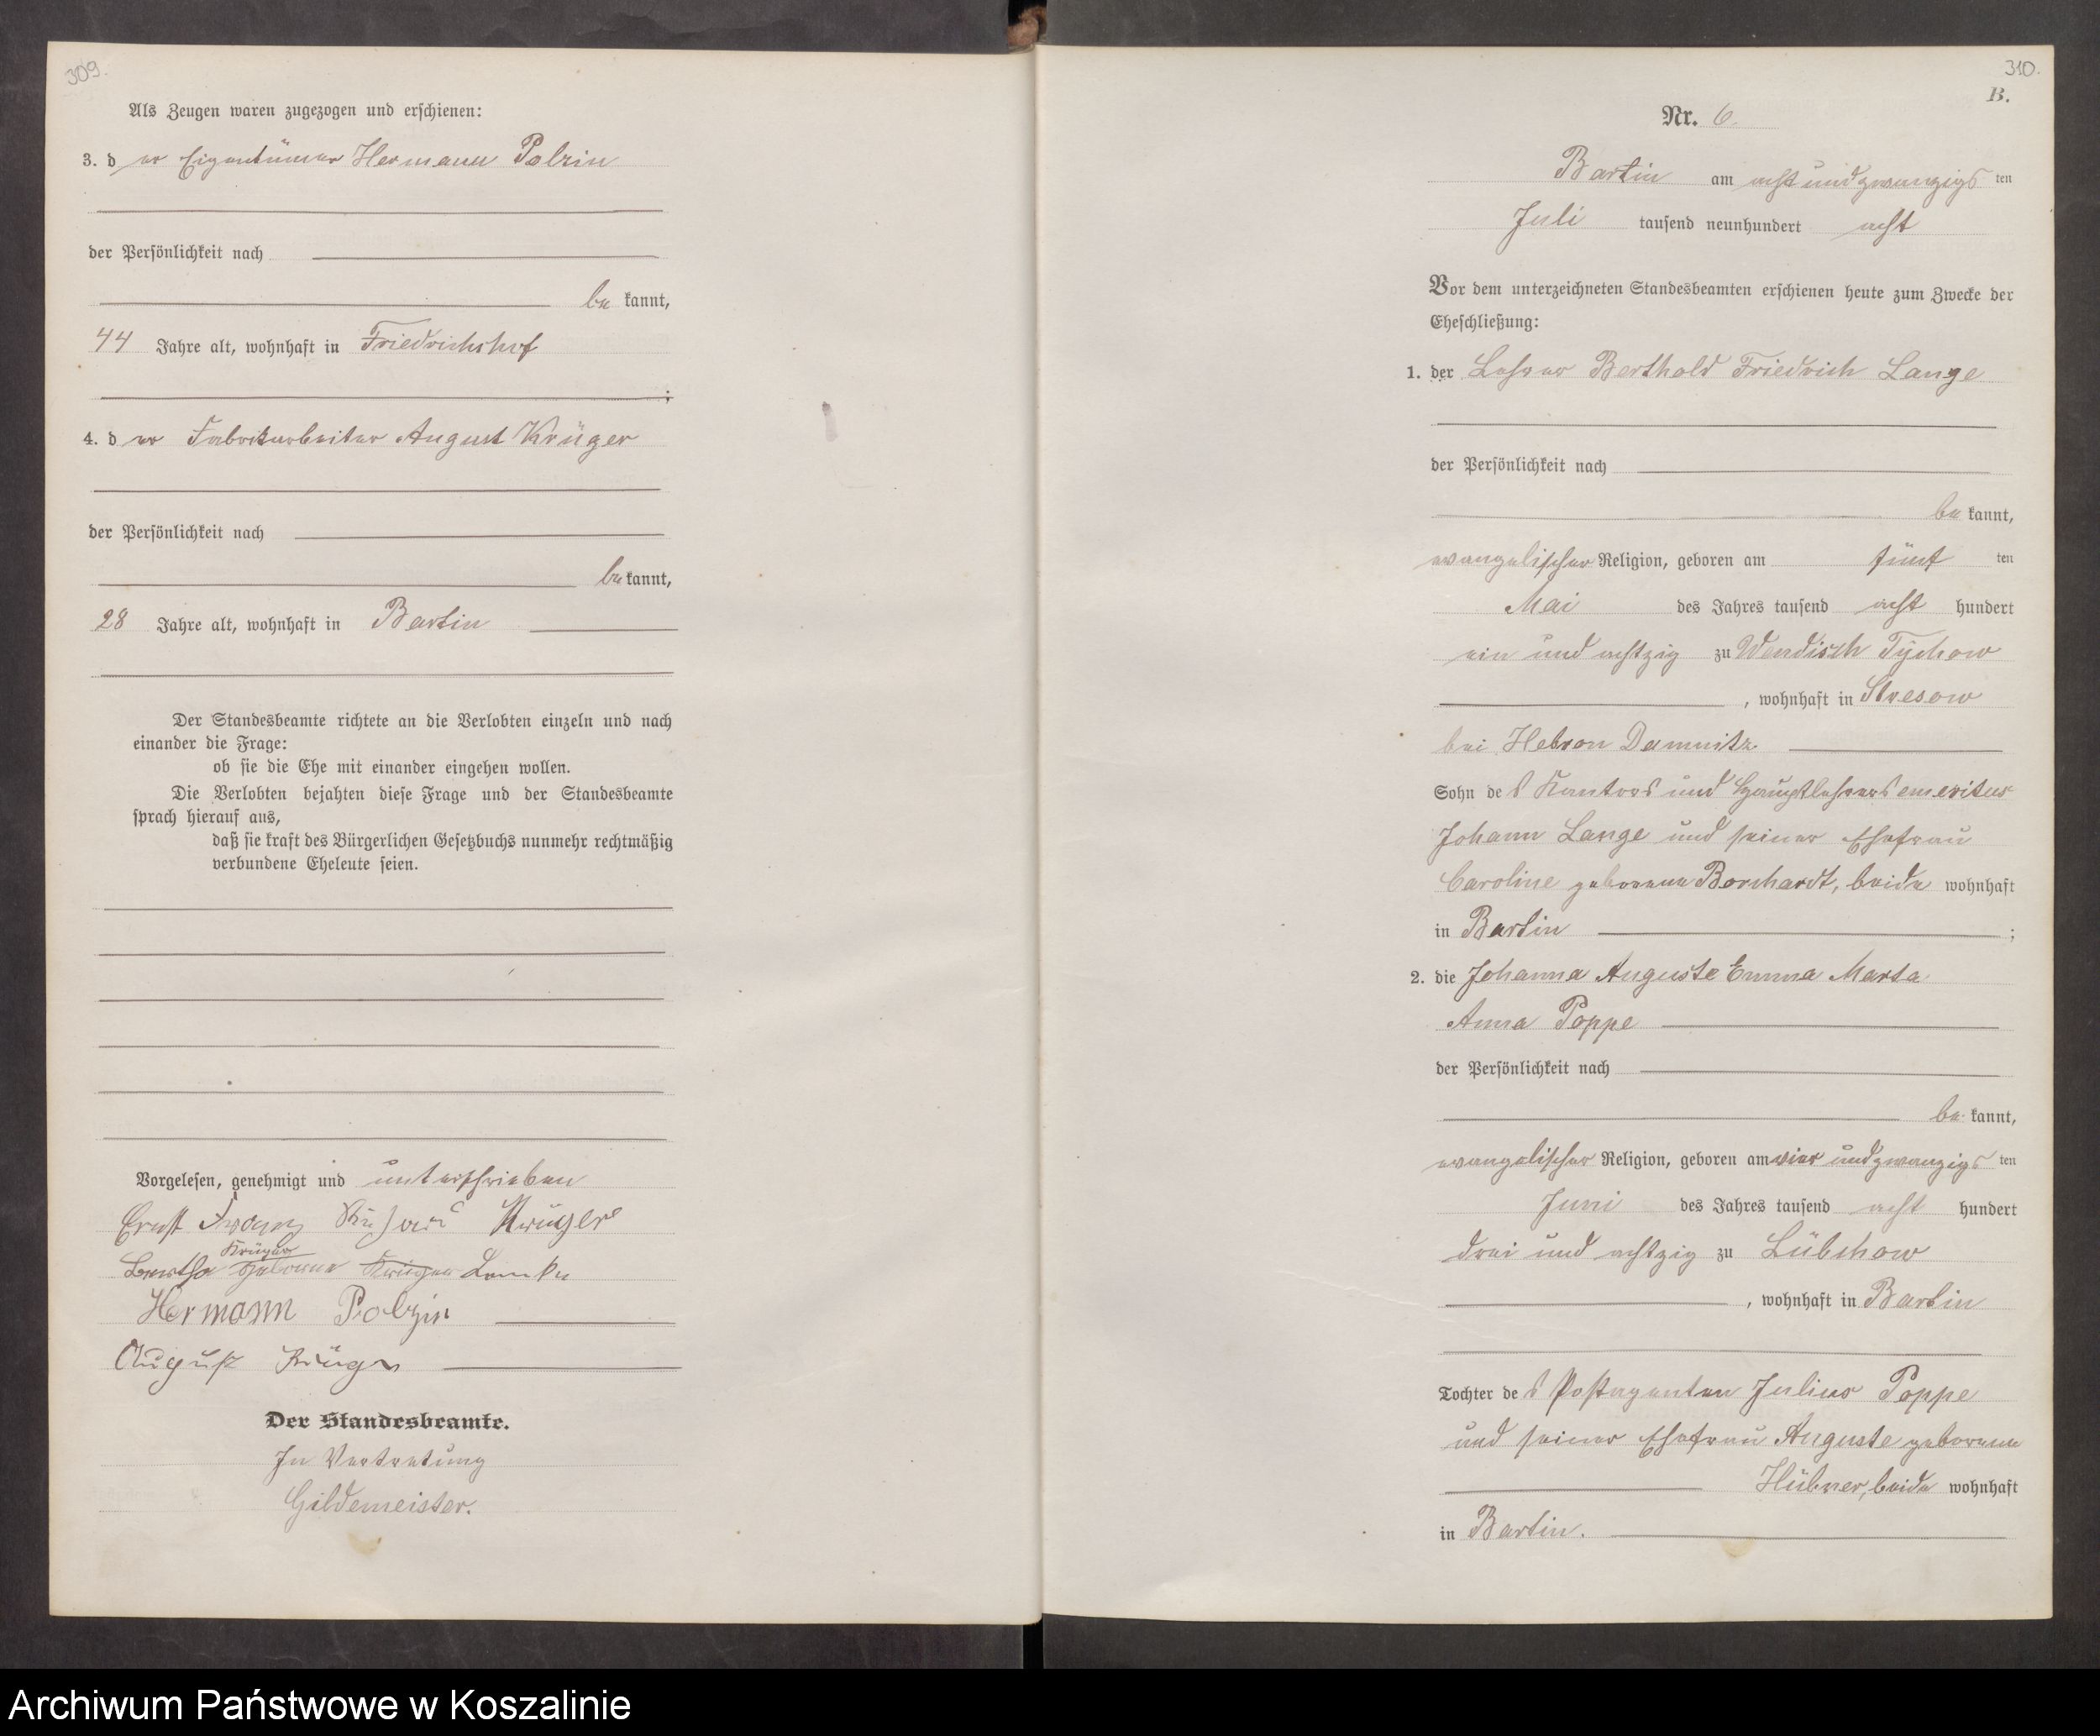 309.
Als Zeugen waren zugezogen und erschienen:
3. d er Eigentümer Hermann Polzin
der Persönlichkeit nach
be kannt,
44 Jahre alt, wohnhaft in Friedrichshof
;
4. d er Fabrikarbeiter August Krüger
der Persönlichkeit nach
be kannt,
28 Jahre alt, wohnhaft in Bartin
Der Standesbeamte richtete an die Verlobten einzeln und nach
einander die Frage:
ob sie die Ehe mit einander eingehen wollen.
Die Verlobten bejahten diese Frage und der Standesbeamte
sprach hierauf aus,
daß sie kraft des Bürgerlichen Gesetzbuchs nunmehr rechtmäßig
verbundene Eheleute seien.
Vorgelesen, genehmigt und unterschrieben
Ernst Krüger
Krüger
Bertha geborene Krüger Lemke
Hermann Polzin
August Krüger
Der Standesbeamte.
In Vertretung
Gildemeister.
310.
B.
Nr. 6.
Bartin am acht und zwanzigs ten
Juli tausend neunhundert acht
Vor dem unterzeichneten Standesbeamten erschienen heute zum Zwecke der
Eheschließung:
1. der Lehrer Berthold Friedrich Lange
der Persönlichkeit nach
be kannt,
evangelischer Religion, geboren am fünf ten
Mai des Jahres tausend acht hundert
ein und achtzig zu Wendisch Tychow
, wohnhaft in Stresow
bei Hebron Damnitz
Sohn de s Kantors und Hauptlehrers emeritus
Johann Lange und seiner Ehefrau
Caroline geborene Borchardt, beide wohnhaft
in Bartin ;
2. die Johanna Auguste Emma Marta
Anna Poppe
der Persönlichkeit nach
be kannt,
evangelischer Religion, geboren am vier und zwanzigs ten
Juni des Jahres tausend acht hundert
drei und achtzig zu Lübchow
, wohnhaft in Bartin
Tochter de s Postagenten Julius Poppe
und seiner Ehefrau Auguste geborene
Hübner, beide wohnhaft
in Bartin.
Archiwum Państwowe w Koszalinie